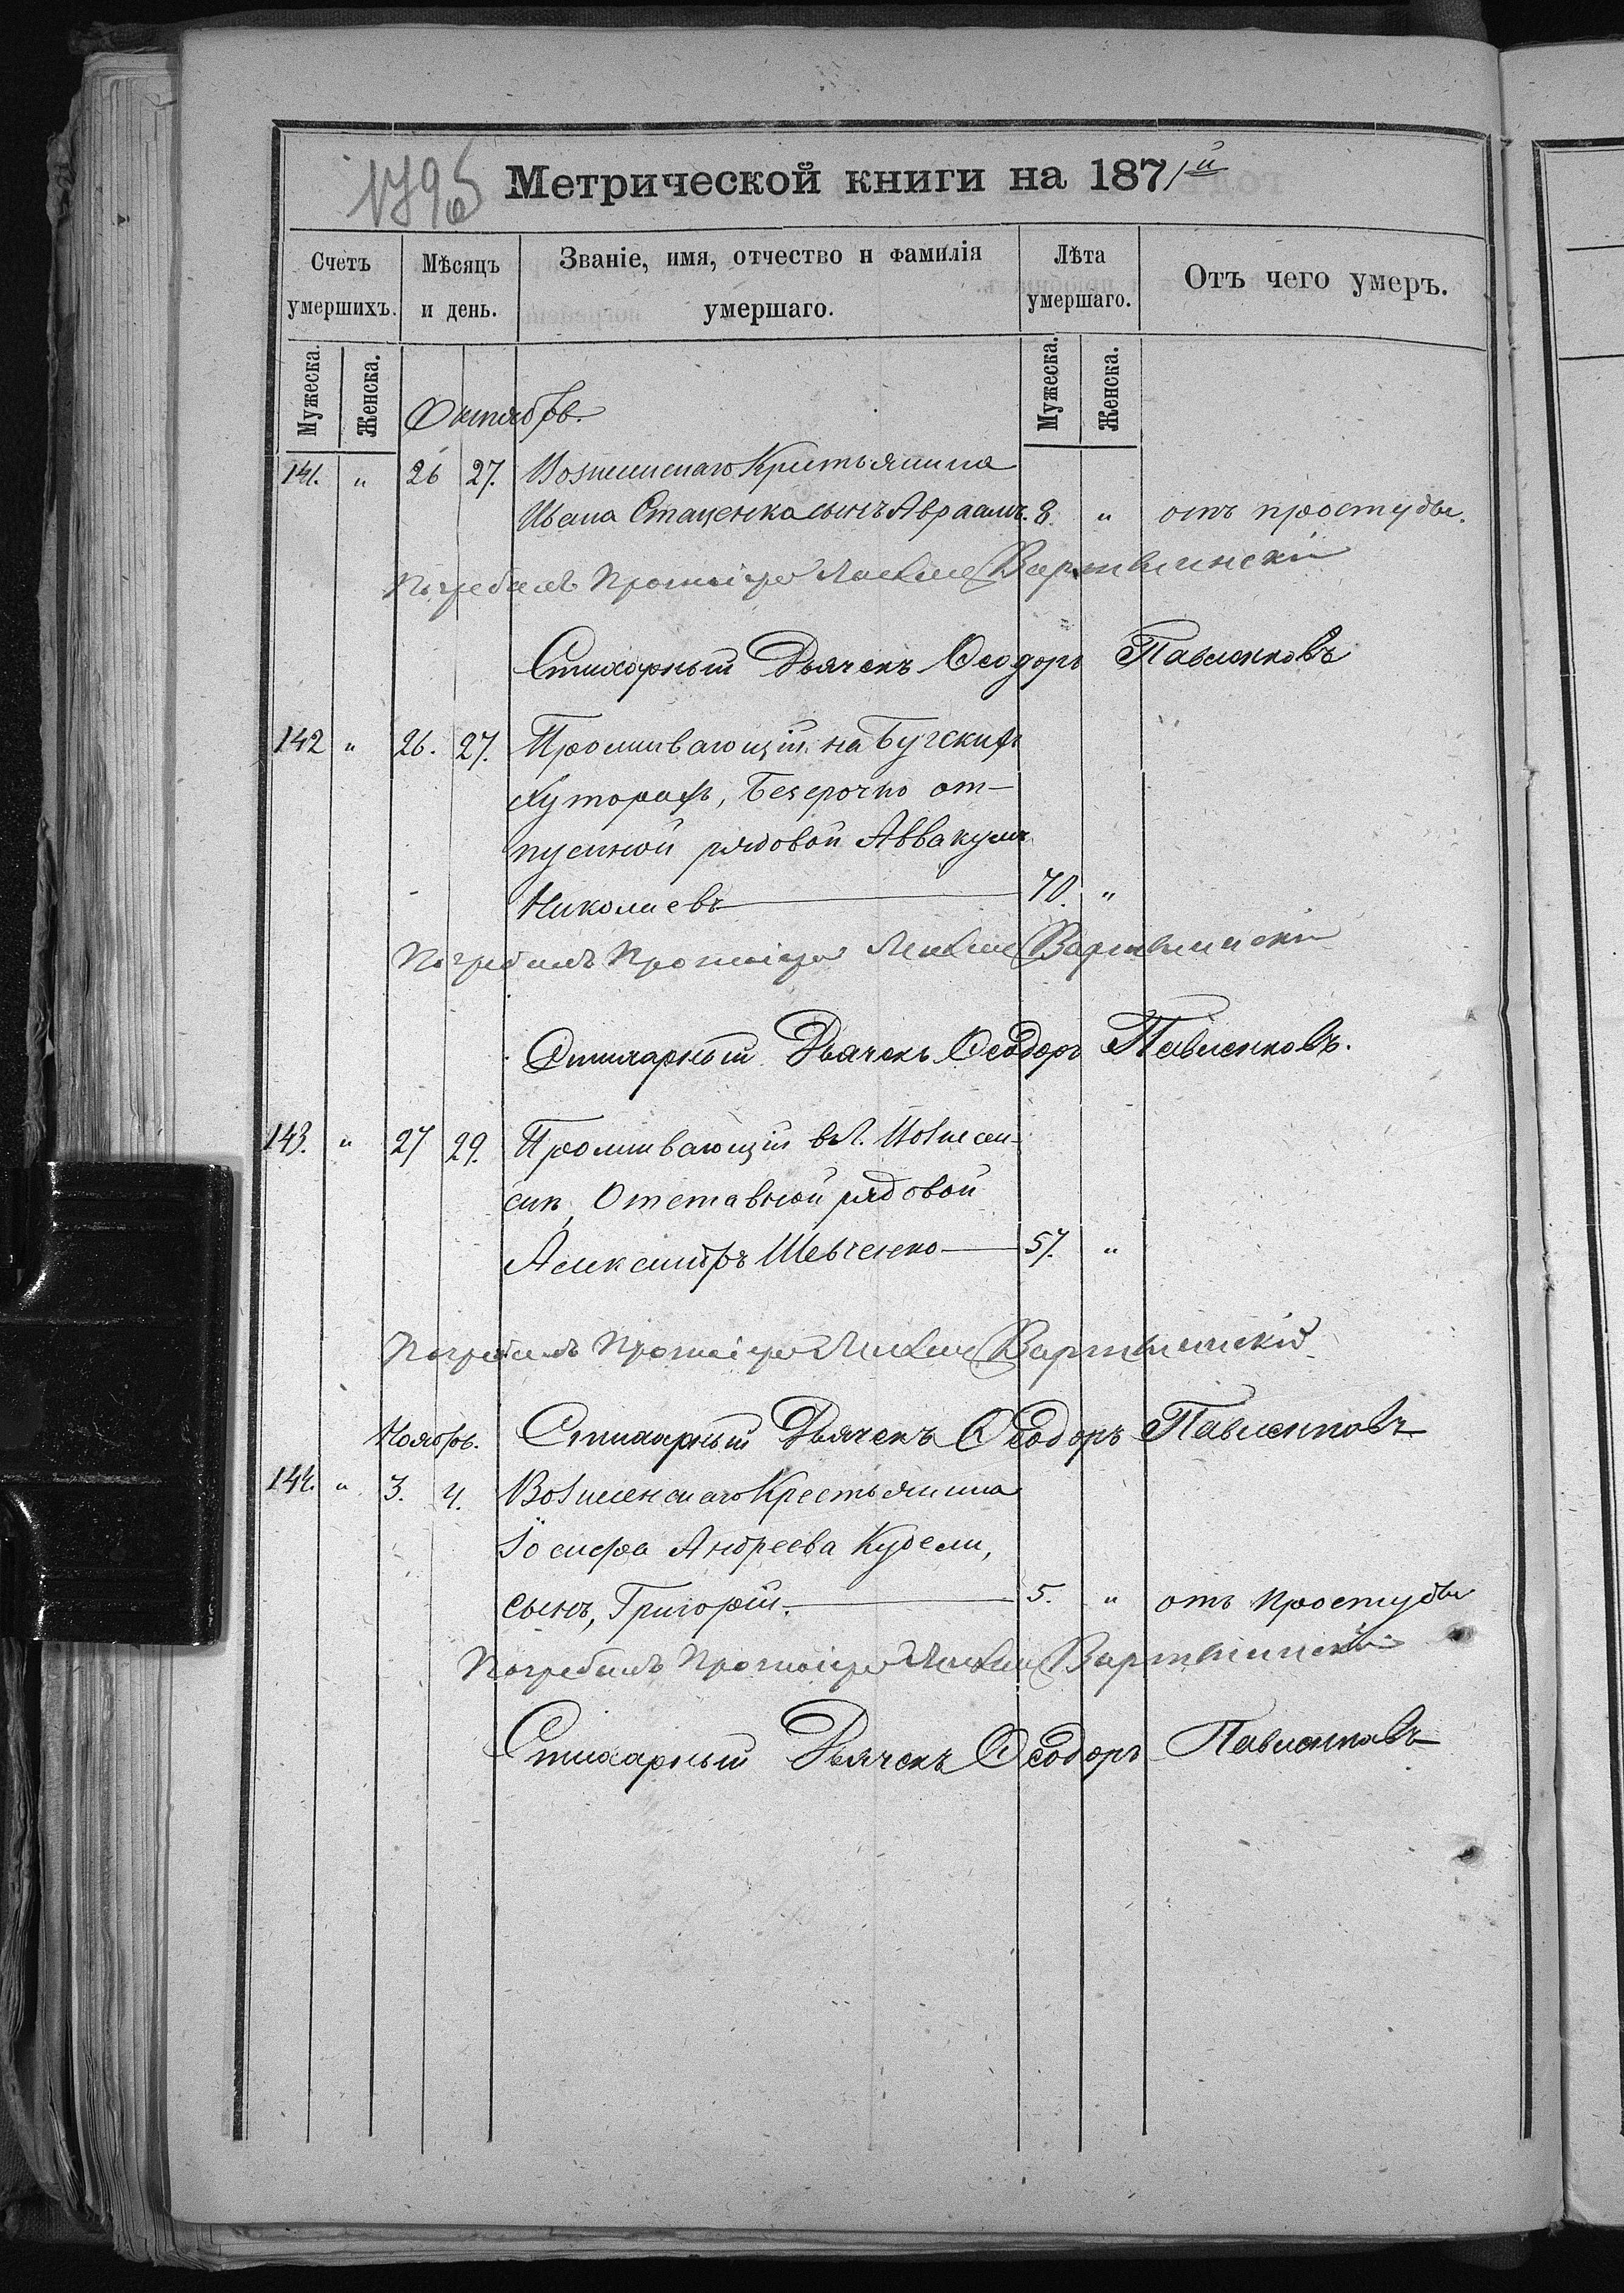 Метрической книги на 1871й
Счетъ умершихъ.
Мѣсяцъ и день.
Званіе, имя, отчество и фамилія умершаго.
Лѣта умершаго.
Отъ чего умеръ.
Мужеска. Женска. Мужеска. Женска.
Октябрь.
141. " 26 27. Вознесенскаго Крестьянина
Ивана Стаценка сынъ Авраамъ. 8. " отъ простуды.
Погребалъ Протоіерей
Стихарный Дьячекъ Ѳеодоръ Павленковъ
142 " 26. 27. Проживающій на Бугскихъ
Хуторахъ, Безсрочно от-
пускной рядовой Аввакумъ
Николаевъ 70. "
Погребалъ Протоіерей
Стихарный Дьячекъ Ѳеодоръ Павленковъ.
143. " 27 29. Проживающій в г. Вознесен-
ске, Отставной рядовой
Александръ Шевченко 57. "
Погребалъ Протоіерей
Стихарный Дьячекъ Ѳеодоръ Павленковъ
Ноябрь.
144. " 3. 4. Вознесенскаго Крестьянина
Іосифа Андреева Кудели,
сынъ, Григорій. 5. " отъ простуды
Погребалъ Протоіерей
Стихарный Дьячекъ Ѳеодоръ Павленковъ